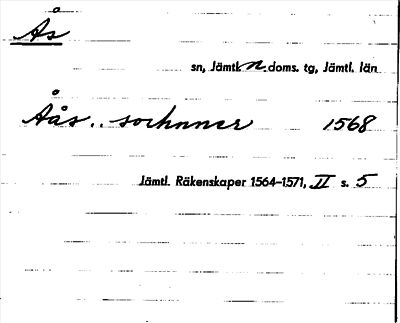 Ås
sn, Jämtl. n. doms. tg, Jämtl. län
Åås.. sochnner 1568
Jämtl. Räkenskaper 1564–1571, II s. 5